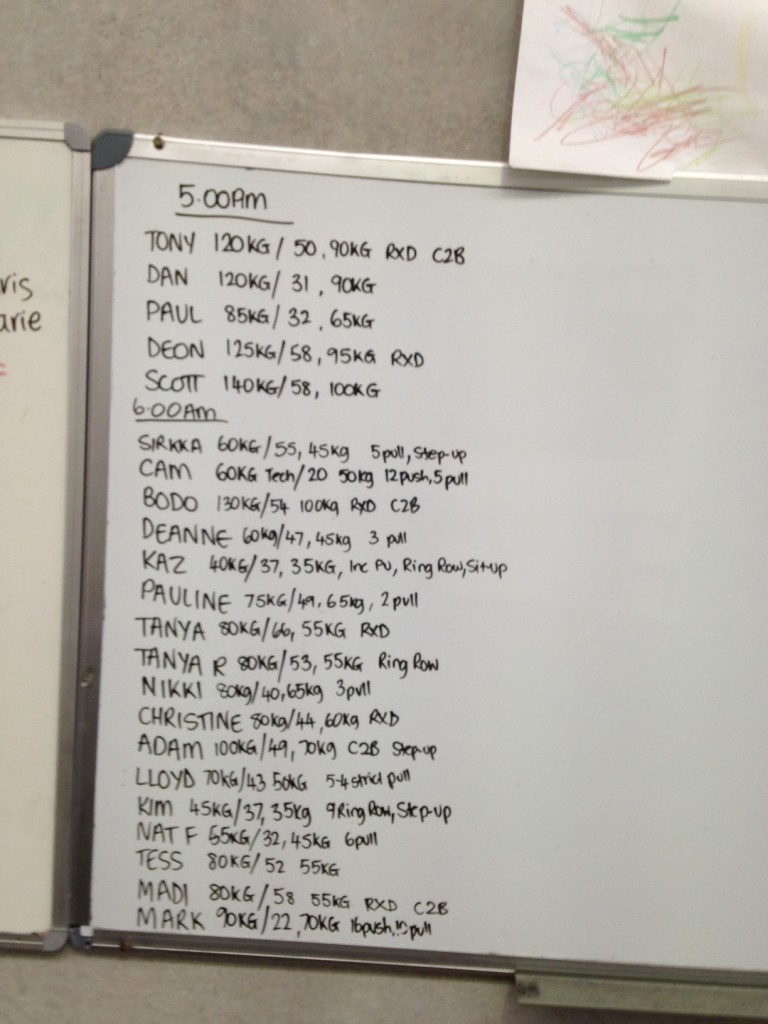 5.00AM
TONY 120KG/ 50, 90KG RXD C2B
DAN 120KG/ 31, 90KG
PAUL 85KG/ 32, 65KG
DEON 125KG/58, 95KG RXD
SCOTT 140KG/58, 100KG
6.00AM
SIRKKA 60KG/55, 45kg 5pull, Step-up
CAM 60KG Tech/20 50kg 12push, 5pull
BODO 130KG/54 100kg RXD C2B
DEANNE 60kg/47, 45kg 3 pull
KAZ 40KG/37, 35KG, Inc PU, Ring Row, Situp
PAULINE 75KG/49, 65kg, 2pull
TANYA 80KG/66, 55KG RXD
TANYA R 80KG/53, 55KG Ring Row
NIKKI 80kg/40, 65kg 3pull
CHRISTINE 80kg/44, 60kg RXD
ADAM 100KG/49, 70kg C2B Step-up
LLOYD 70KG/43 50KG 5-4 strict pull
KIM 45KG/37, 35kg 9 Ring Row, Step-up
NAT F 55KG/32, 45KG 6pull
TESS 80KG/52 55KG
MADI 80KG/58 55KG RXD C2B
MARK 90KG/22, 70KG 16push, pull
ris
arie